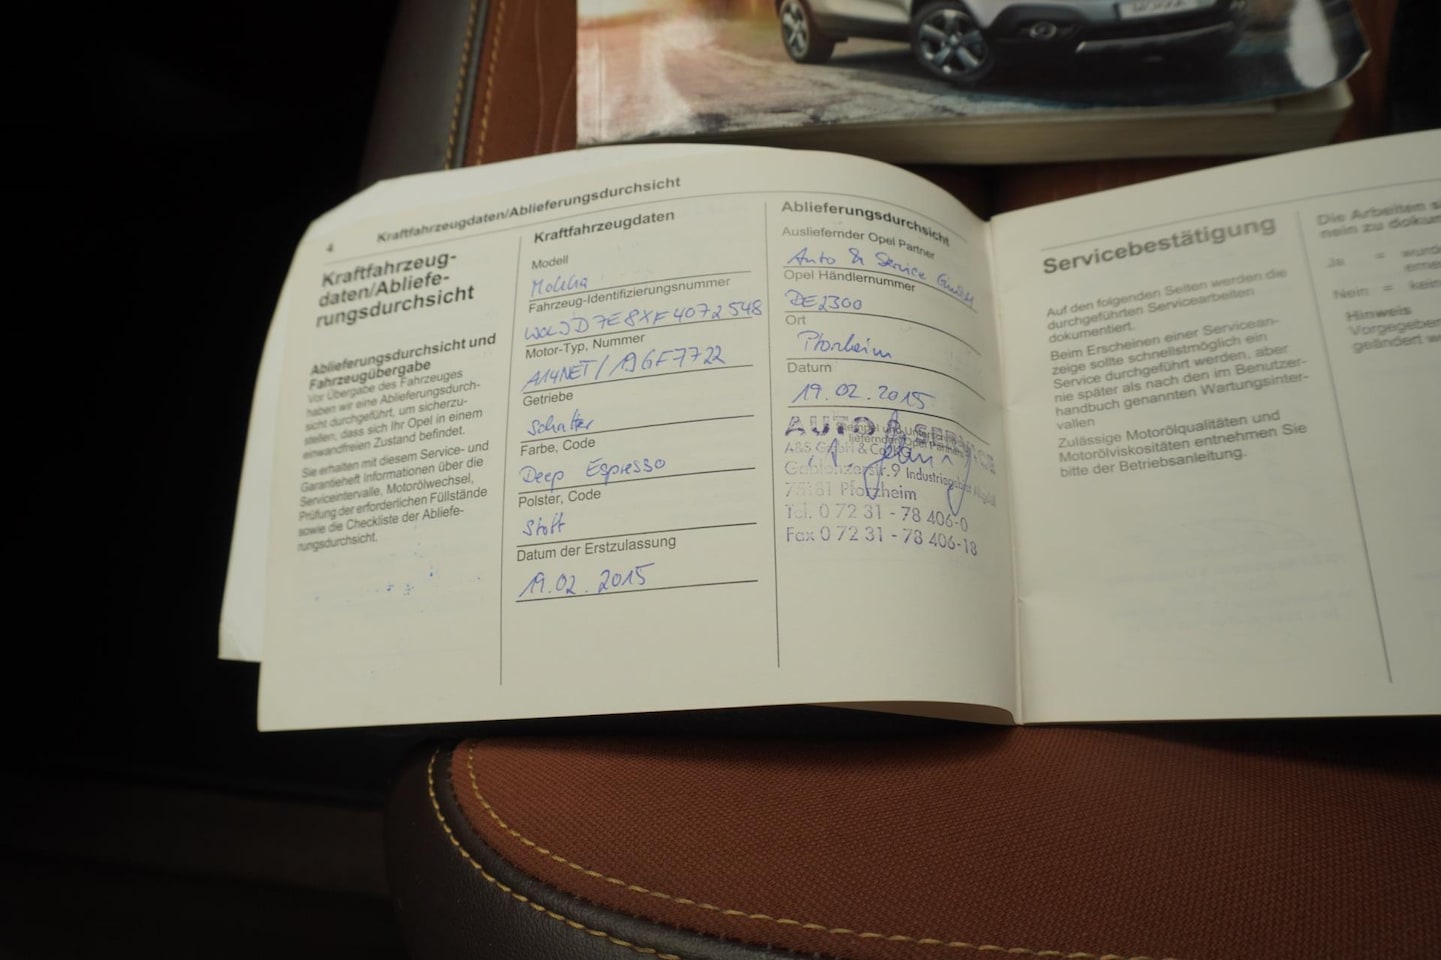 MOKKA
4
Kraftfahrzeugdaten/Ablieferungsdurchsicht
Kraftfahrzeug-
daten/Abliefe-
rungsdurchsicht
Ablieferungsdurchsicht und
Fahrzeugübergabe
Vor Übergabe des Fahrzeuges
haben wir eine Ablieferungsdurch-
sicht durchgeführt, um sicherzu-
stellen, dass sich Ihr Opel in einem
einwandfreien Zustand befindet.
Sie erhalten mit diesem Service- und
Garantieheft Informationen über die
Serviceintervalle, Motorölwechsel,
Prüfung der erforderlichen Füllstände
sowie die Checkliste der Abliefe-
rungsdurchsicht.
Kraftfahrzeugdaten
Modell
Mokka
Fahrzeug-Identifizierungsnummer
W0LJD7E8XF4072548
Motor-Typ, Nummer
A14NET / 19GF7722
Getriebe
Schalter
Farbe, Code
Deep Espresso
Polster, Code
Stoff
Datum der Erstzulassung
19.02.2015
Ablieferungsdurchsicht
Ausliefernder Opel Partner
Auto & Service GmbH
Opel Händlernummer
DE2300
Ort
Pforzheim
Datum
19.02.2015
AUTO & SERVICE
A&S GmbH & Co. KG
Gablonzerstr.9 Industriegebiet
75181 Pforzheim
Tel. 0 72 31 - 78 406-0
Fax 0 72 31 - 78 406-18
Servicebestätigung
Auf den folgenden Seiten werden die
durchgeführten Servicearbeiten
dokumentiert.
Beim Erscheinen einer Servicean-
zeige sollte schnellstmöglich ein
Service durchgeführt werden, aber
nie später als nach den im Benutzer-
handbuch genannten Wartungsinter-
vallen
Zulässige Motorölqualitäten und
Motorölviskositäten entnehmen Sie
bitte der Betriebsanleitung.
Die Arbeiten
nein zu
Ja = wurd
erne
Nein = kein
Hinweis
Vorgegeben
geändert w